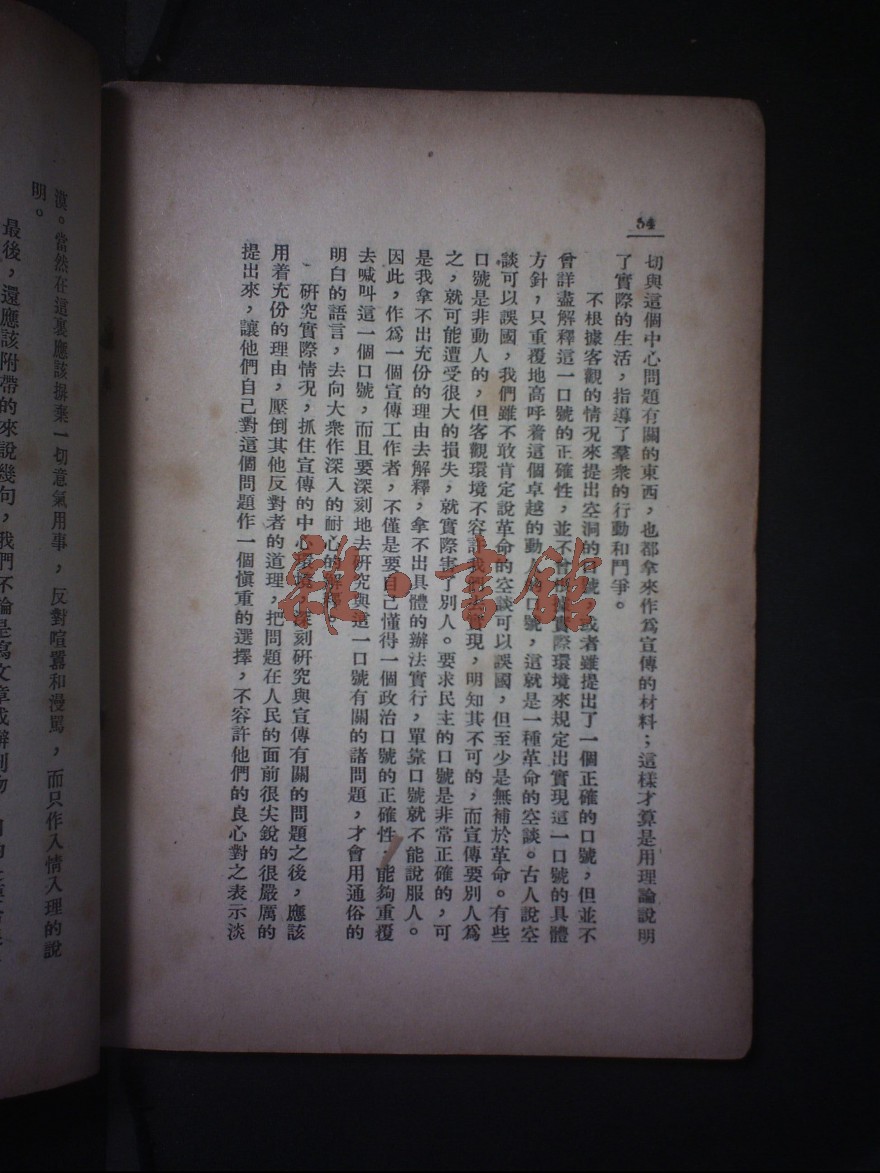 54
切與這個中心問題有關的東西，也都拿來作爲宣傳的材料；這樣才算是用理論說明
了實際的生活，指導了羣衆的行動和鬥爭。
不根據客觀的情况來提出空洞的口號，或者雖提出了一個正確的口號，但並不
曾詳盡解釋這一口號的正確性，並不會根據實際環境來規定出實現這一口號的具體
方針，只重覆地高呼着這個卓越的動人的口號，這就是一種革命的空談。古人說空
談可以誤國，我們雖不敢肯定說革命的空談可以誤國，但至少是無補於革命。有些
口號是非動人的，但客觀環境不容許我們去實現，明知其不可的，而宣傳要別人爲
之，就可能遭受很大的損失，就實際害了別人。要求民主的口號是非常正確的，可
是我拿不出充份的理由去解釋，拿不出具體的辦法實行，單靠口號就不能說服人。
因此，作爲一個宣傳工作者，不僅是要自己懂得一個政治口號的正確性，能夠重覆
去喊叫這一個口號，而且要深刻地去研究與這一口號有關的諸問題，才會用通俗的
明白的語言，去向大衆作深入的耐心的解釋。
研究實際情況，抓住宣傳的中心環境，深刻研究與宣傳有關的問題之後，應該
用着充份的理由，壓倒其他反對者的道理，把問題在人民的面前很尖銳的很嚴厲的
提出來，讓他們自己對這個問題作一個愼重的選擇，不容許他們的良心對之表示淡
漠。當然在這裏應該摒棄一切意氣用事，反對喧囂和漫罵，而只作入情入理的說
明。
最後，還應該附帶的來說幾句，我們不論是寫文章或辦刊物
雜·書館